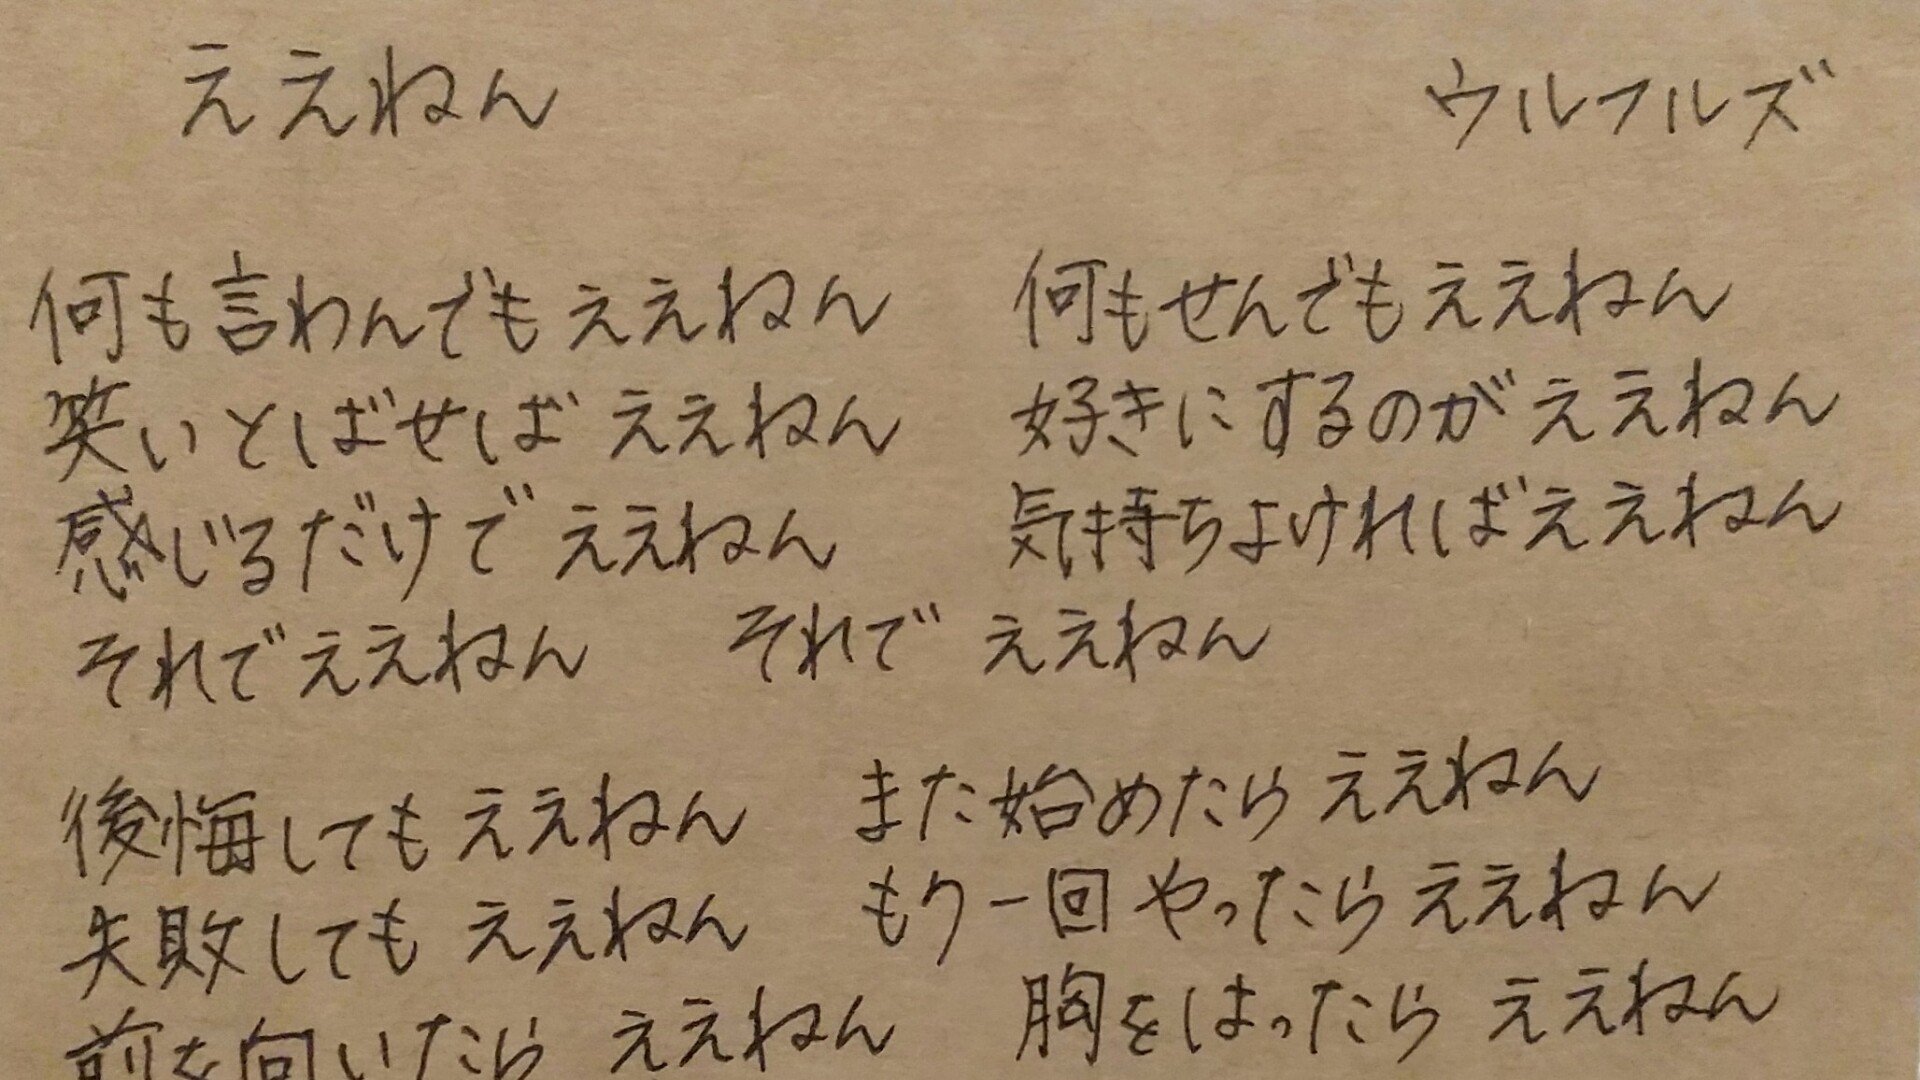 ええねん ウルフルズ
何も言わんでもええねん 何もせんでもええねん
笑いとばせば ええねん 好きにするのが ええねん
感じるだけで ええねん 気持ちよければ ええねん
それで ええねん それで ええねん
後悔しても ええねん また始めたら ええねん
失敗しても ええねん もう一回 やったら ええねん
前を向いたら ええねん 胸をはったら ええねん